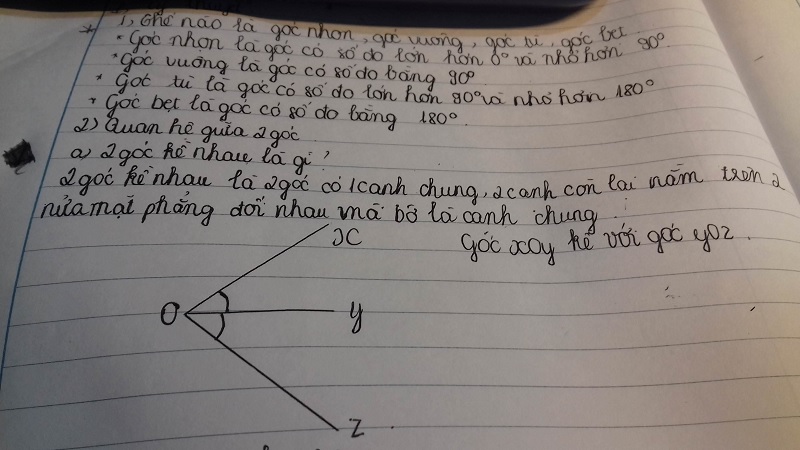 1, Thế nào là góc nhọn, góc vuông, góc tù, góc bẹt
* Góc nhọn là góc có số đo lớn hơn 0° và nhỏ hơn 90°
* Góc vuông là góc có số đo bằng 90°
* Góc tù là góc có số đo lớn hơn 90° và nhỏ hơn 180°
* Góc bẹt là góc có số đo bằng 180°
2) Quan hệ giữa 2 góc
a) 2 góc kề nhau là gì?
2 góc kề nhau là 2 góc có 1 cạnh chung, 2 cạnh còn lại nằm trên 2
nửa mặt phẳng đối nhau mà bờ là cạnh chung.
Góc xOy kề với góc yOz.
x
O
y
z